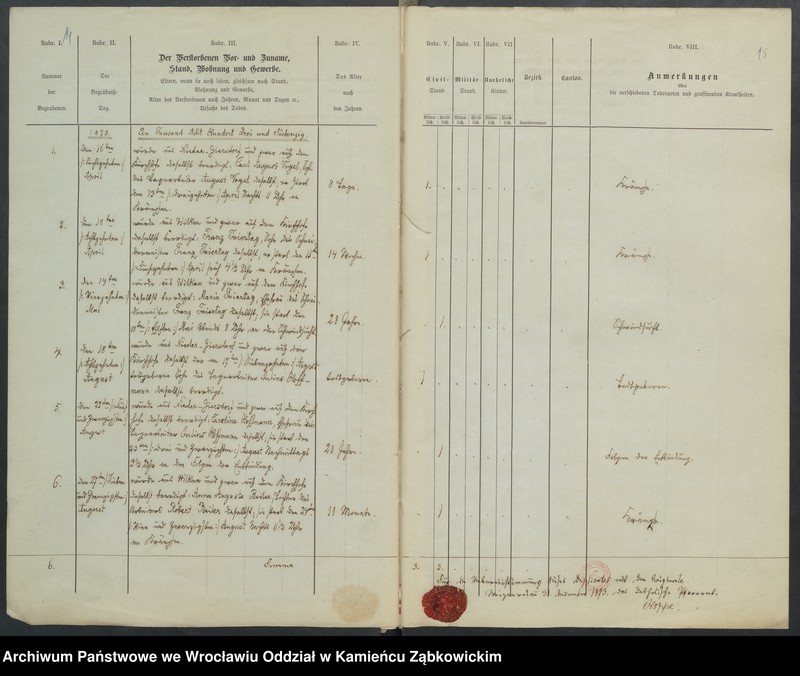 Rubr. I.
Rubr. II.
Rubr. III.
Rubr. IV.
Rubr. V.
Rubr. VI.
Rubr. VII
Rubr. VIII.
15
Nummer
der
Begrabenen.
Die
Begräbniß-
Tag.
Der Verstorbenen Vor- und Zuname,
Stand, Wohnung und Gewerbe.
Eltern, wenn sie noch leben, gleichfalls nach Stand,
Wohnung und Gewerbe.
Alter des Verstorbenen nach Jahren, Monat und Tagen ec.,
Ursache des Todes.
Das Alter
nach
den Jahren.
Civil-
Stand.
Militär-
Stand.
Uneheliche
Kinder.
Bezirk.
Canton.
Anmerkungen
über
die verschiedenen Todesarten und grassirenden Krankheiten.
1873.
Ein Tausend Acht Hundert Drei und Siebenzig.
1.
Den 16ten
/: Sechszehnten :/
April
wurde aus Nieder-Giersdorf und zwar auf dem
Kirchhofe daselbst beerdigt: Paul August Vogel, Sohn
des Tagearbeiter August Vogel daselbst, er starb
den 13ten /: dreizehnten :/ April Nachts 11 Uhr an
Krämpfen.
8 Tage.
1.
Krämpfe.
2.
Den 18ten
/: Achtzehnten :/
April
wurde aus Wiltsch und zwar auf dem Kirchhofe
daselbst beerdigt: Franz Feiertag, Sohn des
Franz Feiertag daselbst, er starb den
April früh 4 1/2 Uhr an Krämpfen.
14 Wochen.
1
Krämpfe.
3.
den 14ten
/: Vierzehnten :/
Mai
wurde aus Wiltsch und zwar auf dem Kirchhofe
daselbst beerdigt: Maria Feiertag, Ehefrau des
Franz Feiertag daselbst, sie starb den
11ten /: Elften :/ Mai Abends 8 Uhr an der Schwindsucht.
28 Jahr.
1.
Schwindsucht.
4.
den 18ten
/: Achtzehnten :/
August
wurde aus Nieder-Giersdorf und zwar auf dem
Kirchhofe daselbst der am 17ten /: Siebenzehnten :/ August
todtgeborene Sohn des Tagearbeiter Julius
daselbst beerdigt.
todtgeboren.
1
Todtgeboren.
5.
und Zwanzigsten :/
August
wurde aus Nieder-Giersdorf und zwar auf dem Kirch-
hofe daselbst beerdigt: Karoline
Tagearbeiter Julius daselbst, sie starb den
23ten /: drei und Zwanzigsten :/ August Nachmittags
3 1/2 Uhr an den Folgen der Entbindung.
28 Jahr.
1
Folgen der Entbindung.
6.
den 27ten /: Sieben
und Zwanzigsten :/
August
wurde aus Wiltsch und zwar auf dem Kirchhofe
daselbst beerdigt: Anna Augusta Tochter des
Robert daselbst, sie starb den
und Zwanzigsten :/ August Nachts 11 1/2 Uhr
an Krämpfen.
11 Monate.
1
Krämpfe.
6.
Summa
3. 3.
Für die Uebereinstimmung dieses Duplicates mit dem Originale.
1873. das katholische Pfarramt.
Archiwum Państwowe we Wrocławiu Oddział w Kamieńcu Ząbkowickim